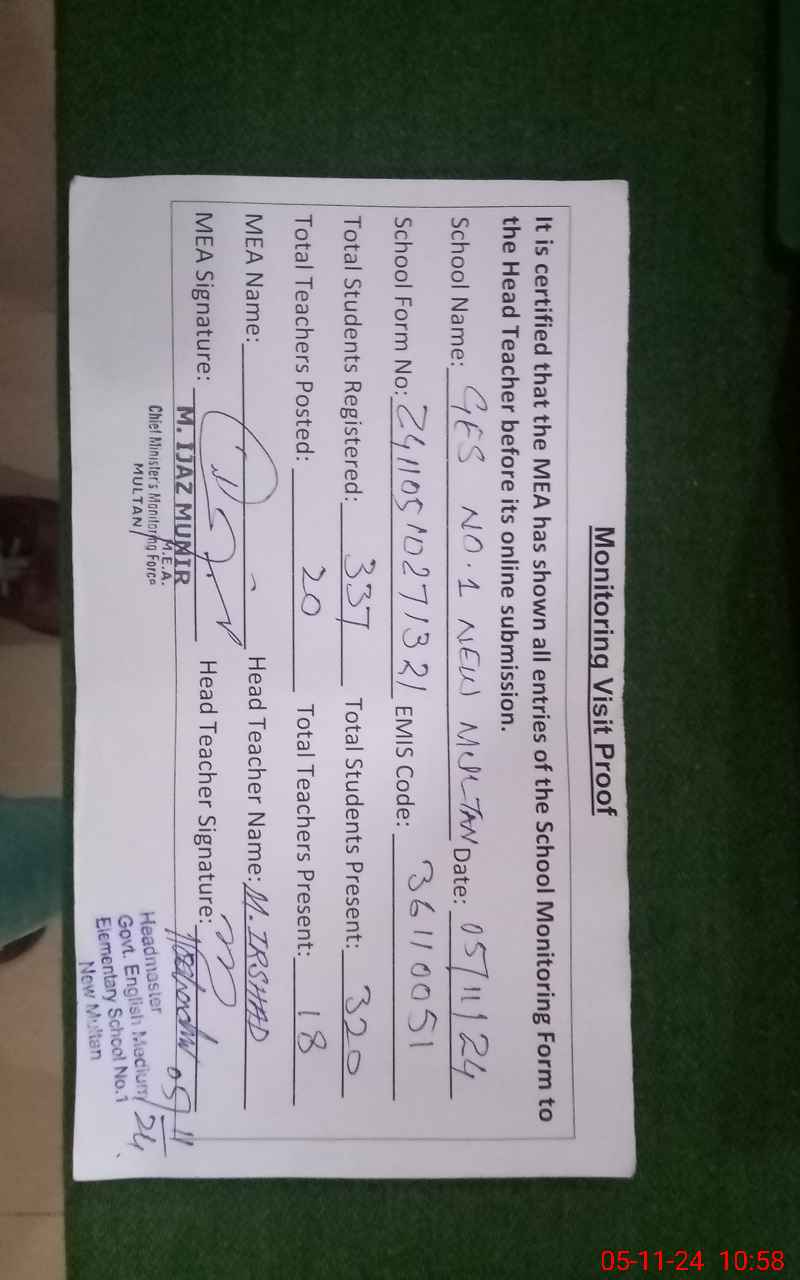 Monitoring Visit Proof
It is certified that the MEA has shown all entries of the School Monitoring Form to
the Head Teacher before its online submission.
School Name: GES NO.1 NEW MULTAN Date: 05/11/24
School Form No: EMIS Code: 36110051
Total Students Registered: 337 Total Students Present: 320
Total Teachers Posted: 20 Total Teachers Present: 18
MEA Name: Head Teacher Name: M. IRSHAD
MEA Signature: Head Teacher Signature:
M. IJAZ MUNIR
M.E.A.
Chief Minister's Monitoring Force
MULTAN
05/11/24
Headmaster
Govt. English Medium
Elementary School No.1
New Multan
05-11-24 10:58